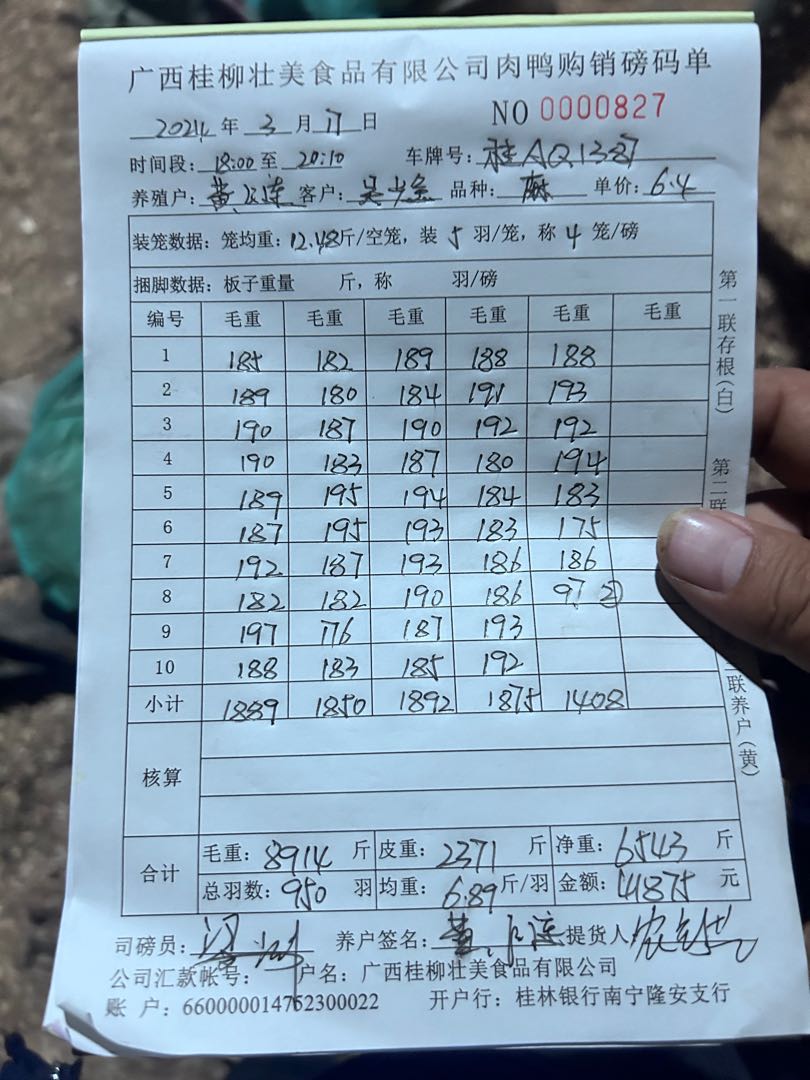 广西桂柳壮美食品有限公司肉鸭购销磅码单
NO 0000827
2024 年 3 月 17 日
时间段: 18:00 至 20:10 车牌号: 桂AQ1387
养殖户: 黄 连 客户: 吴少金 品种: 麻 单价: 6.4
装笼数据: 笼均重: 12.48 斤/空笼, 装 5 羽/笼, 称 4 笼/磅
捆脚数据: 板子重量 斤, 称 羽/磅
编号 毛重 毛重 毛重 毛重 毛重 毛重
1 185 182 189 188 188
2 189 180 184 191 193
3 190 187 190 192 192
4 190 183 187 180 194
5 189 195 194 184 183
6 187 195 193 183 175
7 192 187 193 186 186
8 182 182 190 186 97 ②
9 197 176 187 193
10 188 183 185 192
小计 1889 1850 1892 1875 1408
核算
合计 毛重: 8914 斤 皮重: 2371 斤 净重: 6543 斤
总羽数: 950 羽 均重: 6.89 斤/羽 金额: 41875 元
司磅员: 养户签名: 黄 连 提货人
公司汇款帐号: 户名: 广西桂柳壮美食品有限公司
账 户: 660000014762300022 开户行: 桂林银行南宁隆安支行
第一联存根(白)
第二联
联养户(黄)